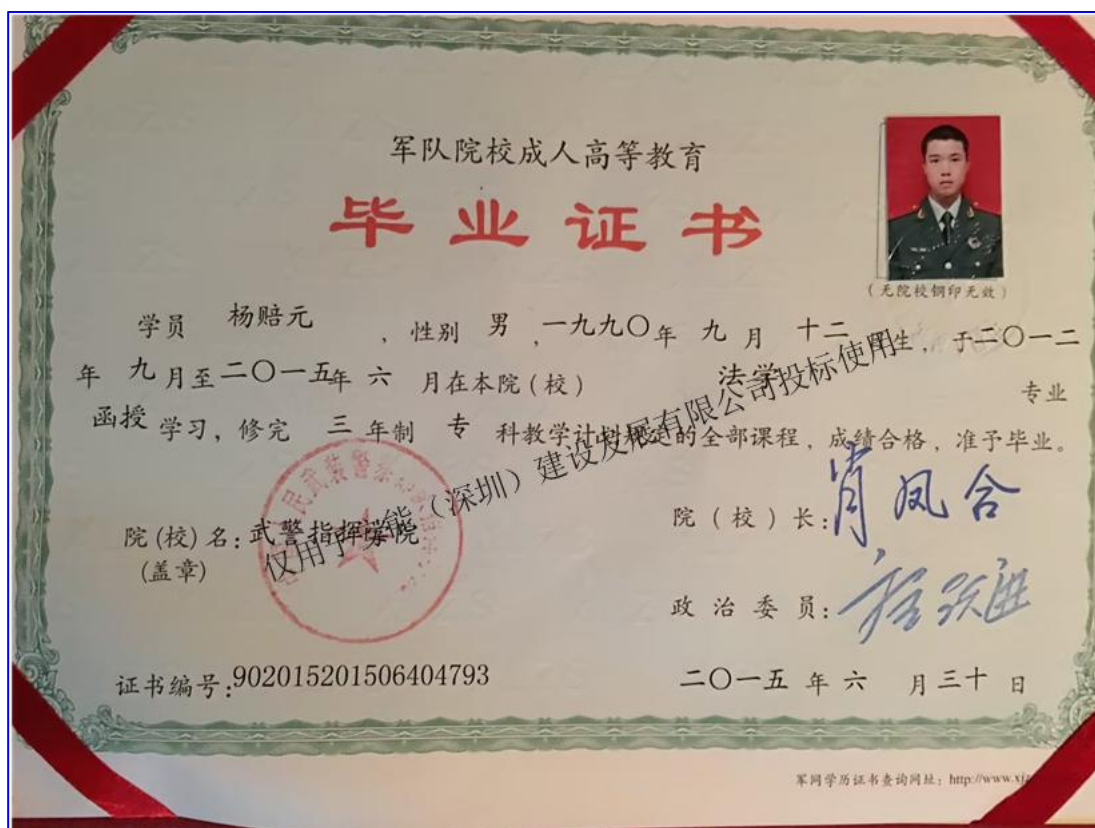 军队院校成人高等教育
毕业证书
(无院校钢印无效)
学员 杨赔元 ，性别 男 ，一九九〇年 九 月 十二 日生，于二〇一二
年 九 月至二〇一五年 六 月在本院(校) 法学 专业
函授 学习，修完 三 年制 专 科教学计划规定的全部课程，成绩合格，准予毕业。
院(校)名：武警指挥学院
(盖章)
院（校）长：肖凤合
政治委员：
证书编号：902015201506404793
二〇一五 年 六 月 三十 日
军网学历证书查询网址：http://www.xj
仅用于 能（深圳）建设发展有限公司投标使用